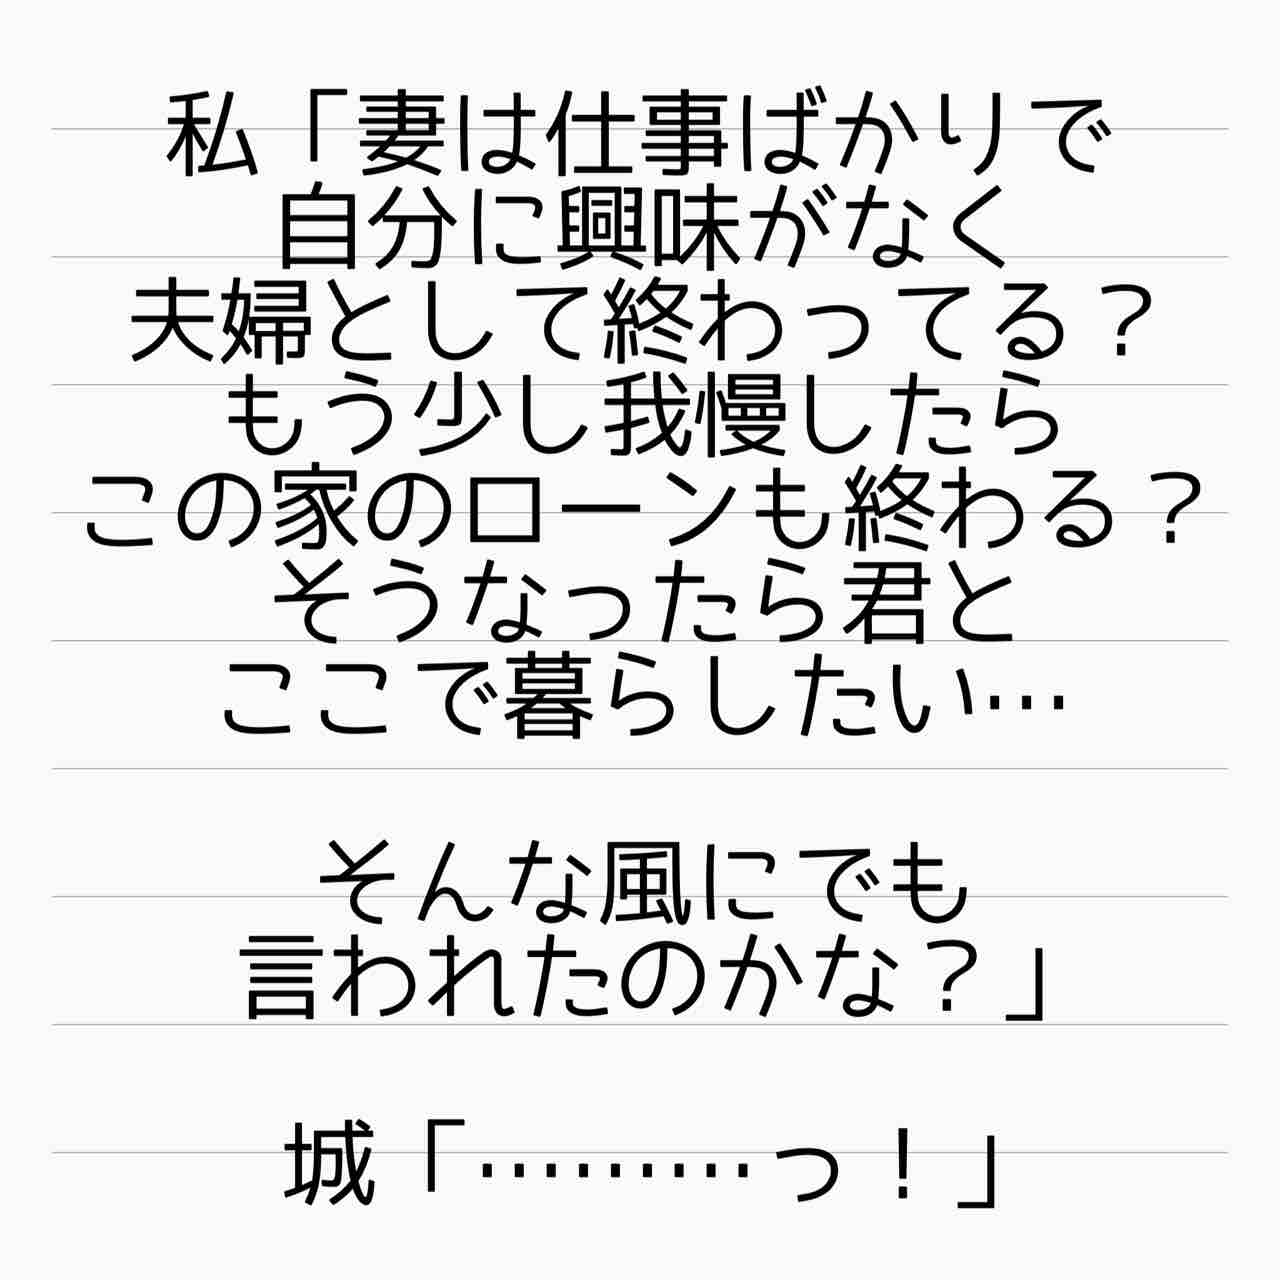 私「妻は仕事ばかりで
自分に興味がなく
夫婦として終わってる？
もう少し我慢したら
この家のローンも終わる？
そうなったら君と
ここで暮らしたい…
そんな風にでも
言われたのかな？」
城「………っ！」